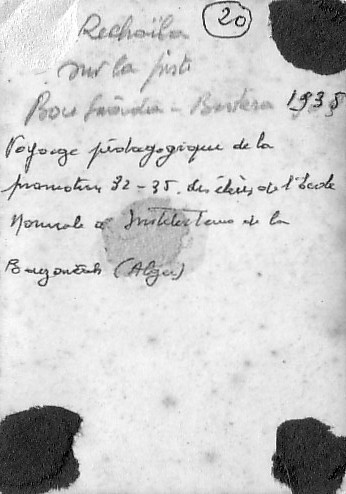 20
Rechaïla
sur la piste
Bou Saâda - 1935
Voyage pédagogique de la
promotion 32-35. des élèves de l'Ecole
Normale d'Instituteurs de la
Bouzaréah (Alger)